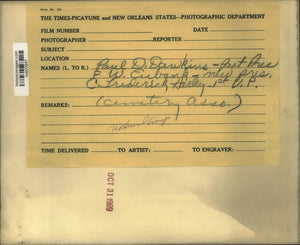 THE TIMES-PICAYUNE and NEW ORLEANS STATES—PHOTOGRAPHIC DEPARTMENT
FILM NUMBER
DATE
PHOTOGRAPHER
REPORTER
SUBJECT
LOCATION
NAMES (L. TO R.) Paul D. Dawkins - Past Pres
E. W. Eubank - new pres.
C. Frederick 1st V.P.
REMARKS: (Cemetery Asso.)
TIME DELIVERED
TO ARTIST:
TO ENGRAVER:
OCT 31 1969